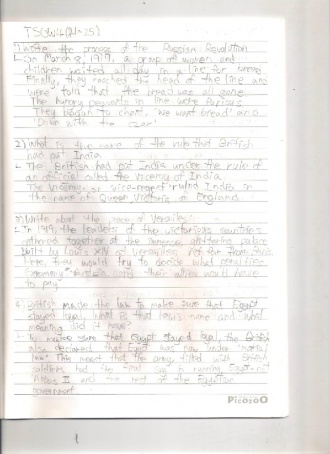 TSOW4 (21-25)
1) Write the process of the Russian Revolution
- On March 8, 1917, a group of women and
children waited all day in a line for bread
Finally, they reached the head of the line and
were told that the bread was all gone
The hungry peasants in line were furious
They began to chant, "we want bread" and
"Down with the czar!"
2) What is the name of the rule that British
had put India
- The British had put India under the rule of
an official called the viceroy of India.
The viceroy or vice-regent ruled India in
the name of Queen Victoria of England
3) Write about the peace of Versailles.
- In 1919, the leaders of the victorious countries
gathered together at the immense glittering palace
built by Louis XIV at Versailles, not far from Paris.
Here, they would try to decide what penalties
Germany and their allies would have
to pay
4. British made the law to make sure that Egypt
stayed loyal, what is that law's name and what
meaning did it have?
- To make sure that Egypt stayed loyal, the British
also declared that Egypt was now under "martial
law." This meant that the army, filled with British
soldiers had the final say in running Egypt - not
Abbas II and the rest of the Egyptian
government.
Picaso